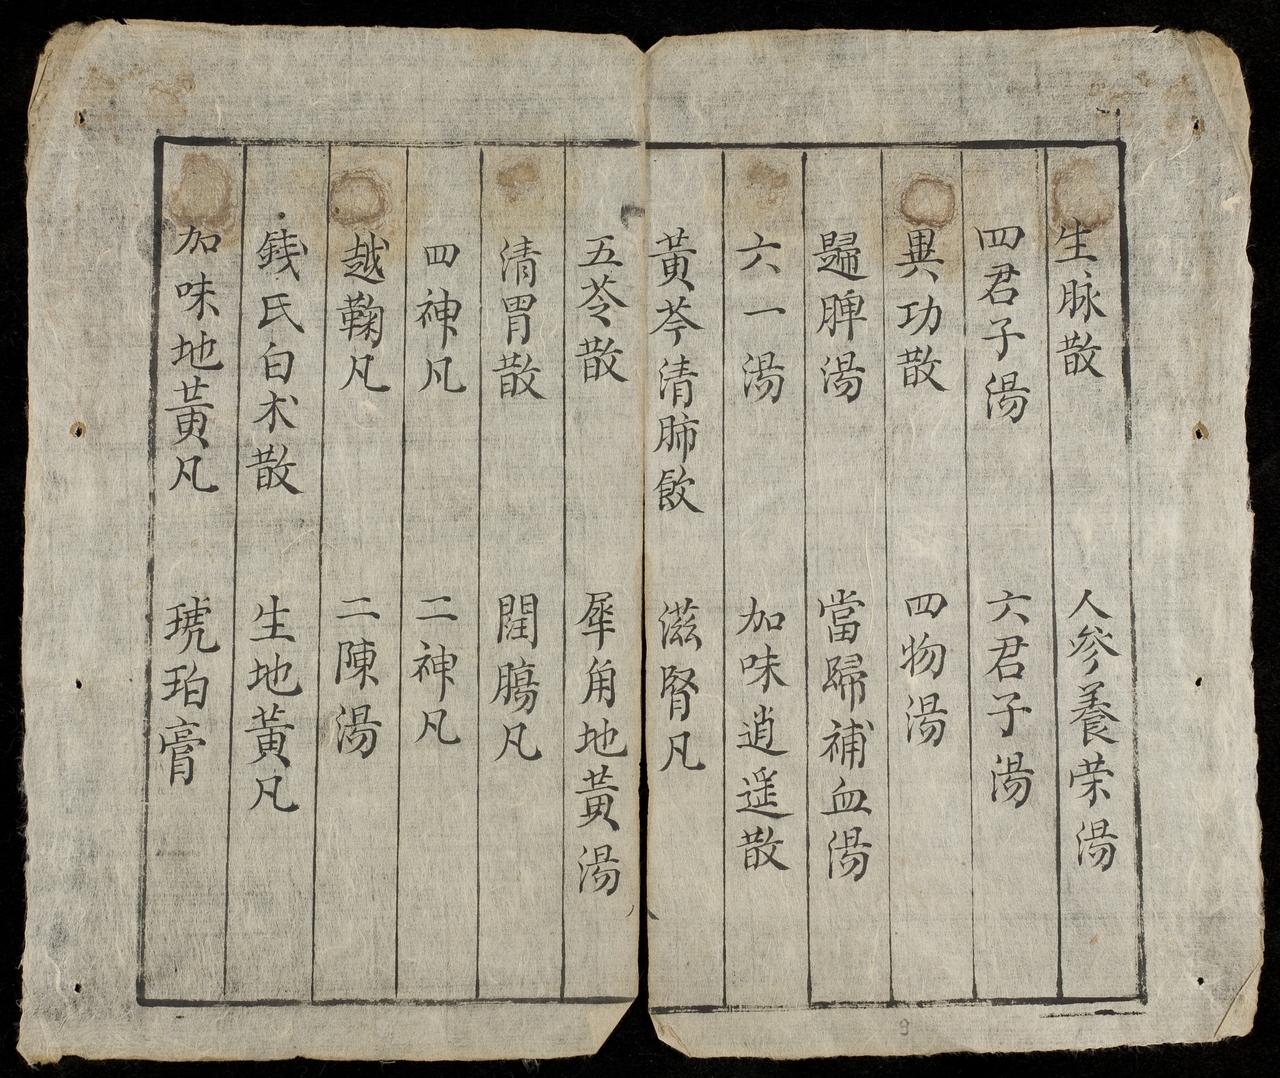 生脉散 人參養荣湯
四君子湯 六君子湯
異功散 四物湯
歸脾湯 當歸補血湯
六一湯 加味逍遥散
黃芩清肺飲 滋腎凡
五苓散 犀角地黃湯
清胃散 閏腸凡
四神凡 二神凡
越鞠凡 二陳湯
錢氏白术散 生地黃凡
加味地黃凡 琥珀膏
9